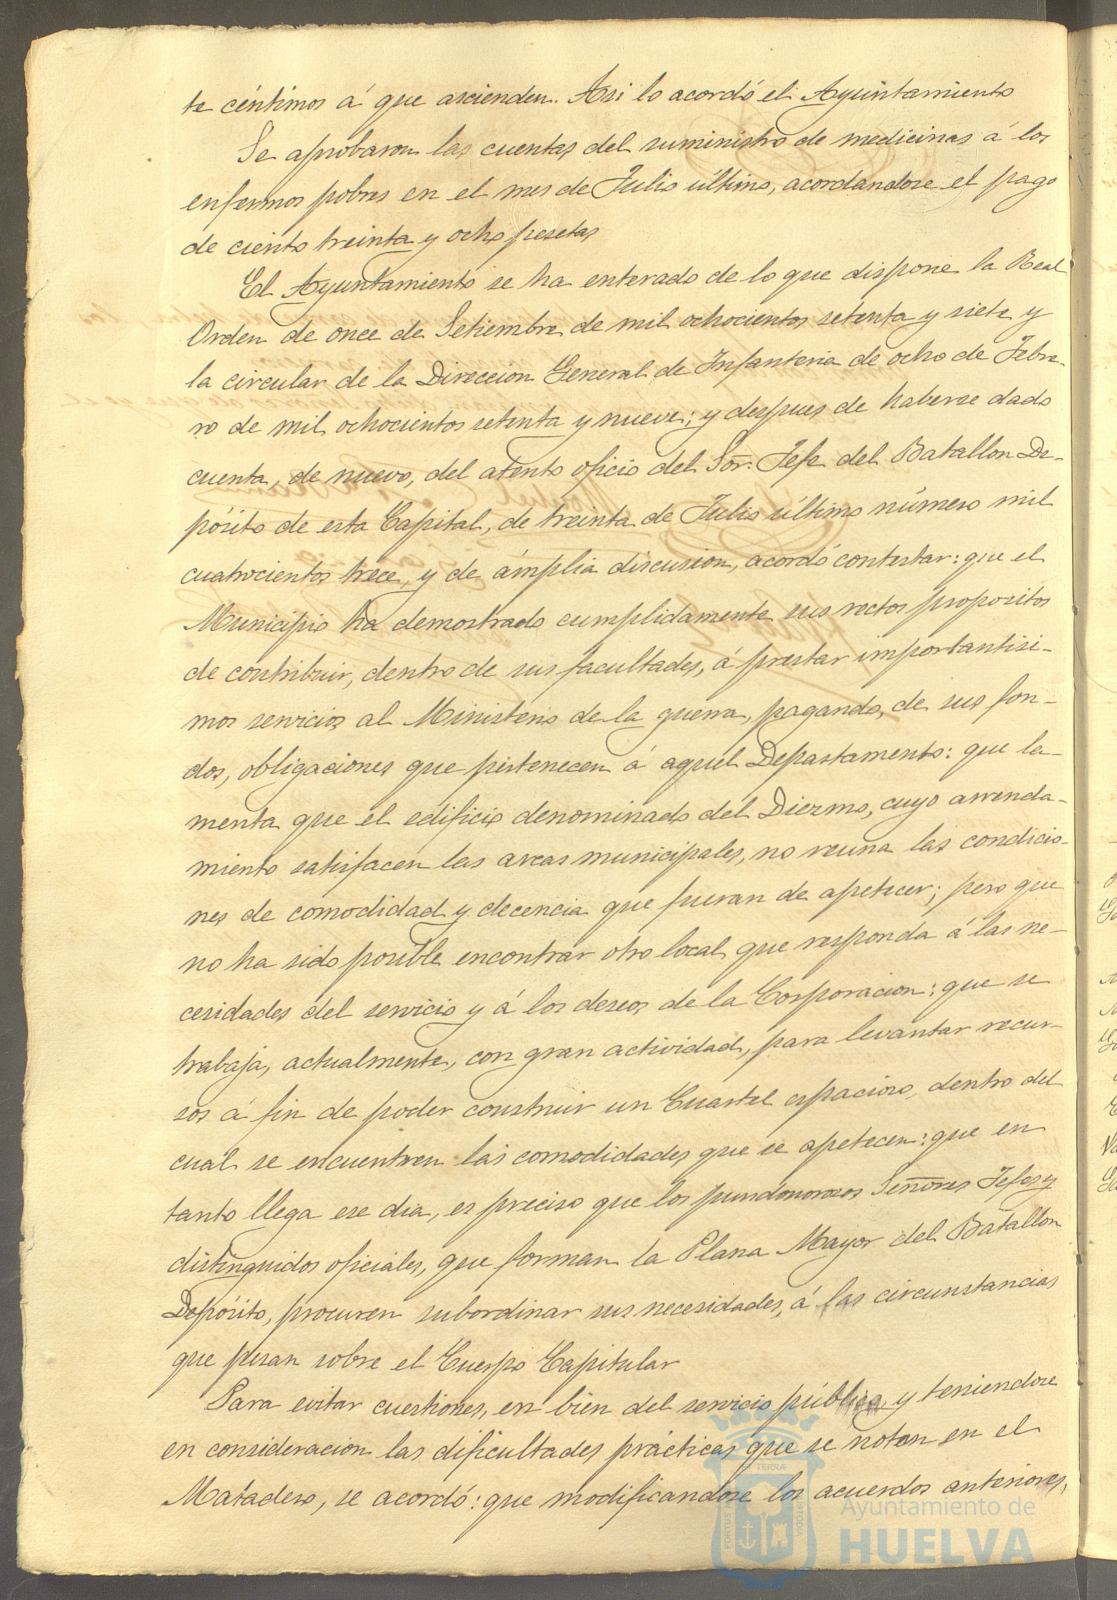 te céntimos á que ascienden. Asi lo acordó el Ayuntamiento
Se aprobaron las cuentas del suministro de medicinas á los
enfermos pobres en el mes de Julio último, acordandose el pago
de ciento treinta y ocho pesetas
El Ayuntamiento se ha enterado de lo que dispone la Real
Orden de once de Setiembre de mil ochocientos setenta y siete y
la circular de la Dirección General de Infanteria de ocho de Febre-
ro de mil ochocientos setenta y nueve; y despues de haberse dado
cuenta, de nuevo, del atento oficio del Sor. Jefe del Batallon De-
pósito de esta Capital, de treinta de Julio último número mil
cuatrocientos trece, y de ámplia discusion, acordó contestar: que el
Municipio ha demostrado cumplidamente sus rectos propositos
de contribuir, dentro de sus facultades, á prestar importantisi-
mos servicios al Ministerio de la guerra, pagando, de sus fon-
dos, obligaciones que pertenecen á aquel Departamento: que la-
menta que el edificio denominado del Diezmo, cuyo arrenda-
miento satisfacen las arcas municipales, no reuna las condicio-
nes de comodidad y decencia que fueran de apetecer; pero que
no ha sido posible encontrar otro local que responda á las ne-
cesidades del servicio y á los deseos de la Corporacion: que se
trabaja, actualmente, con gran actividad, para levantar recur-
sos á fin de poder construir un Cuartel espacioso, dentro del
cual se encuentren las comodidades que se apetecen: que en
tanto llega ese dia, es preciso que los pundonorosos Señores Jefes y
distinguidos oficiales, que forman la Plana Mayor del Batallon
Depósito, procuren subordinar sus necesidades, á las circunstancias
que pesan sobre el Cuerpo Capitular
Para evitar cuestiones, en bien del servicio público y teniendose
en consideracion las dificultades prácticas que se notan en el
Matadero, se acordó: que modificandose los acuerdos anteriores,
Ayuntamiento de
HUELVA